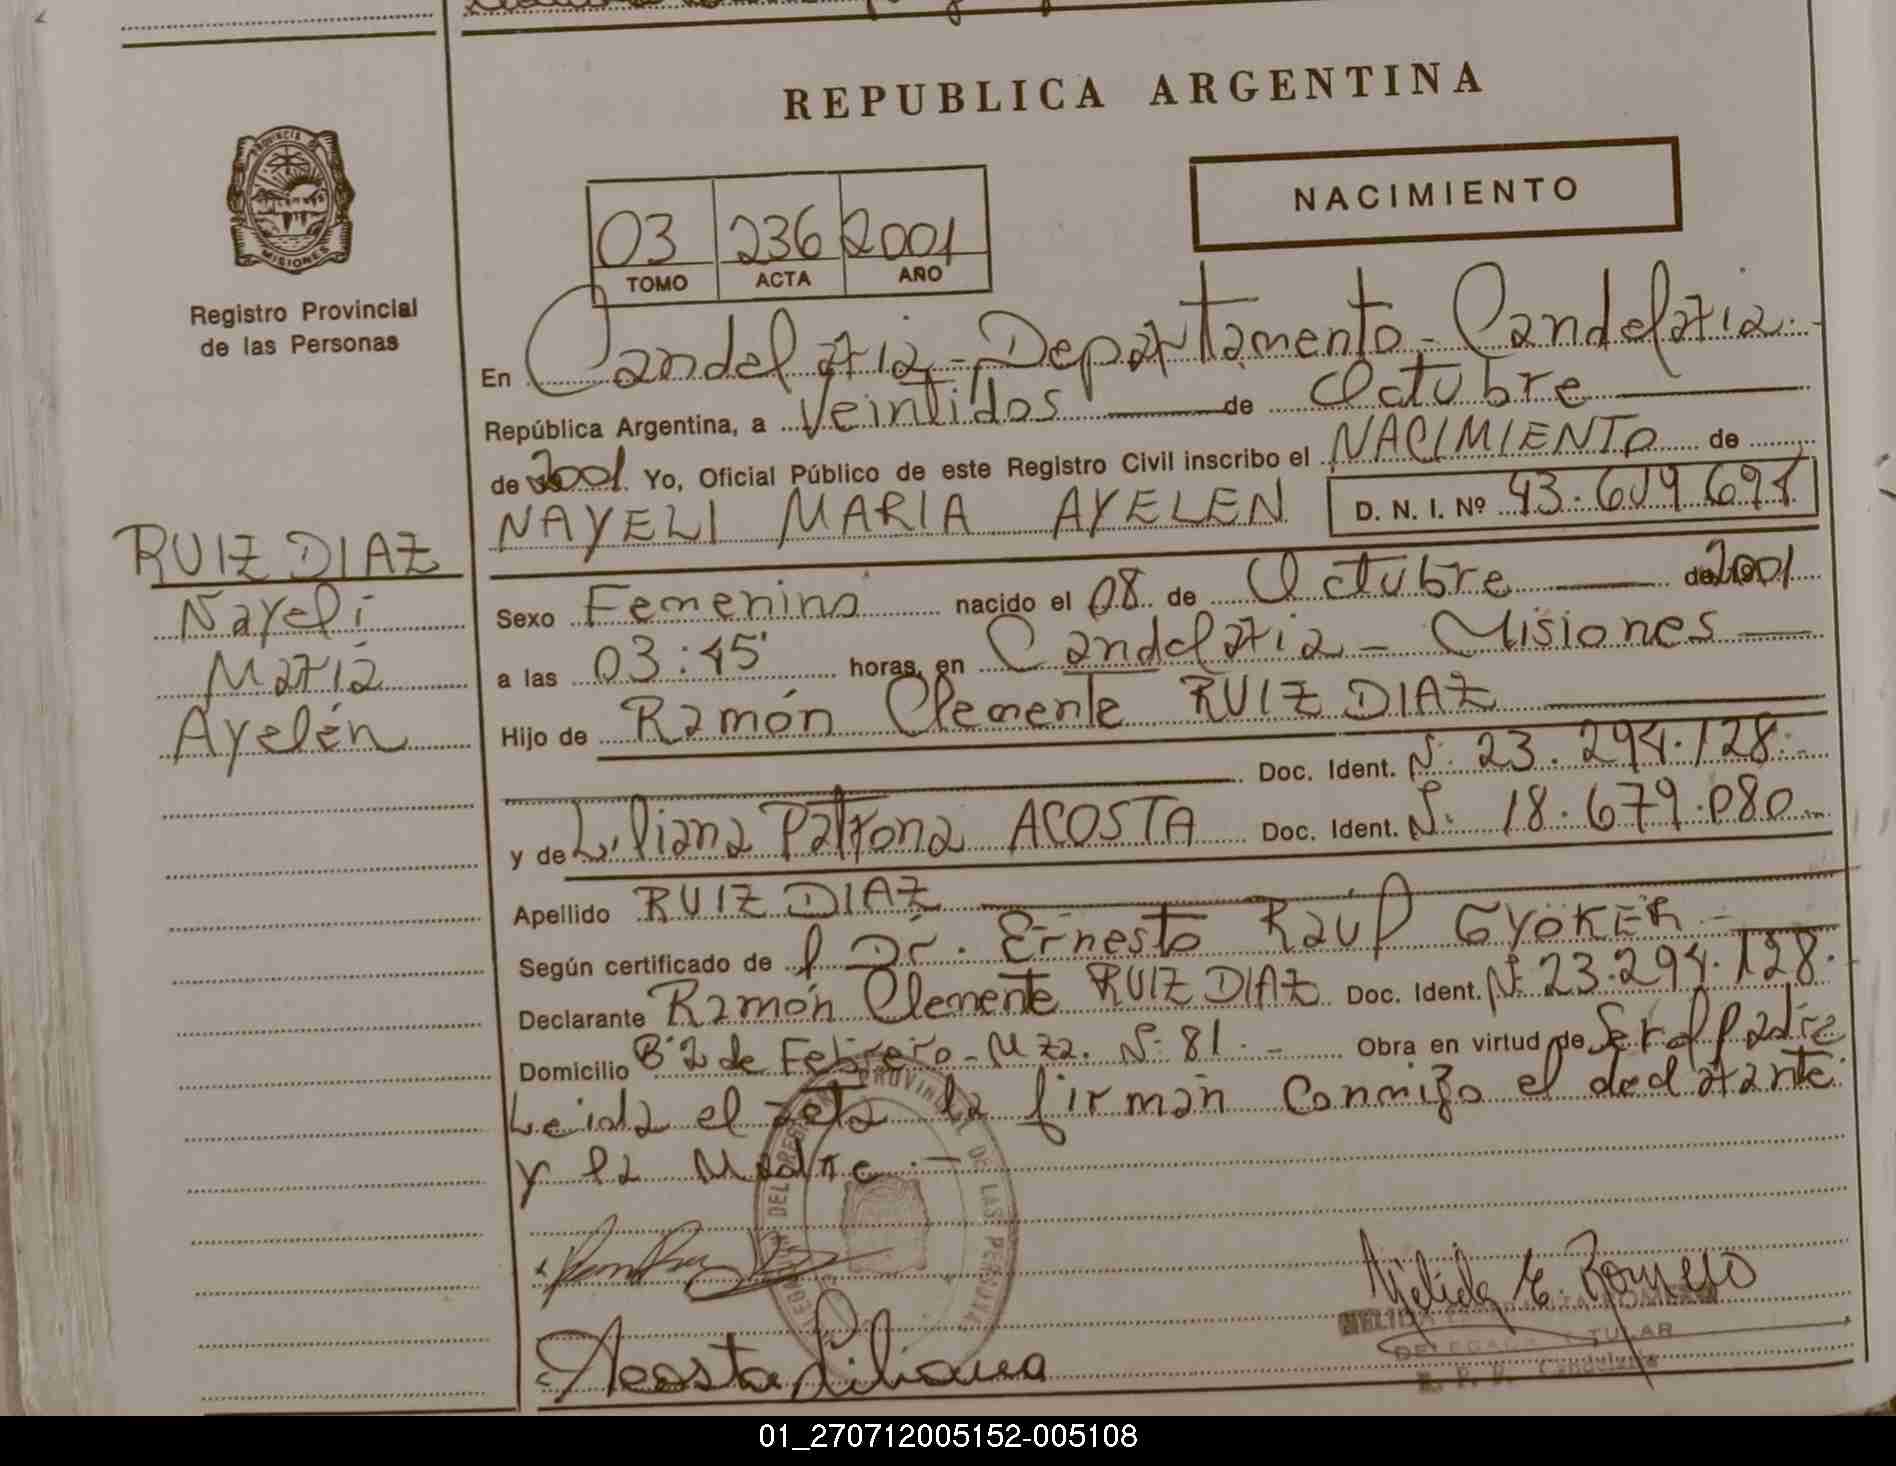 REPUBLICA ARGENTINA
PROVINCIA
MISIONES
Registro Provincial
de las Personas
NACIMIENTO
03 236 2001
TOMO ACTA AÑO
En Candelaria - Departamento - Candelaria.-
República Argentina, a Veintidos de Octubre
de 2001 Yo, Oficial Público de este Registro Civil inscribo el NACIMIENTO de
NAYELI MARIA AYELEN D. N. I. Nº
RUIZ DIAZ
Nayeli
María
Ayelén
Sexo Femenino nacido el 08 de Octubre de 2001
a las 03:45' horas, en Candelaria - Misiones
Hijo de Ramón Clemente RUIZ DIAZ
Doc. Ident. Nº 23.294.128.-
y de Liliana Patrona ACOSTA Doc. Ident. Nº 18.679.080
Apellido RUIZ DIAZ
Según certificado de l Dr. Ernesto Raúl GYOKER -
Declarante Ramón Clemente RUIZ DIAZ Doc. Ident. Nº 23.294.128.
Domicilio Bº 2 de Febrero - Mza. Nº 81. - Obra en virtud de Ser el padre
Leida el acta la firman conmigo el declarante
y la Madre.-
PROVINCIAL DE LAS PERSONAS
Acosta Liliana
Nelida E. Romero
DELEGADA TITULAR
R. P. P. Candelaria
01_270712005152-005108